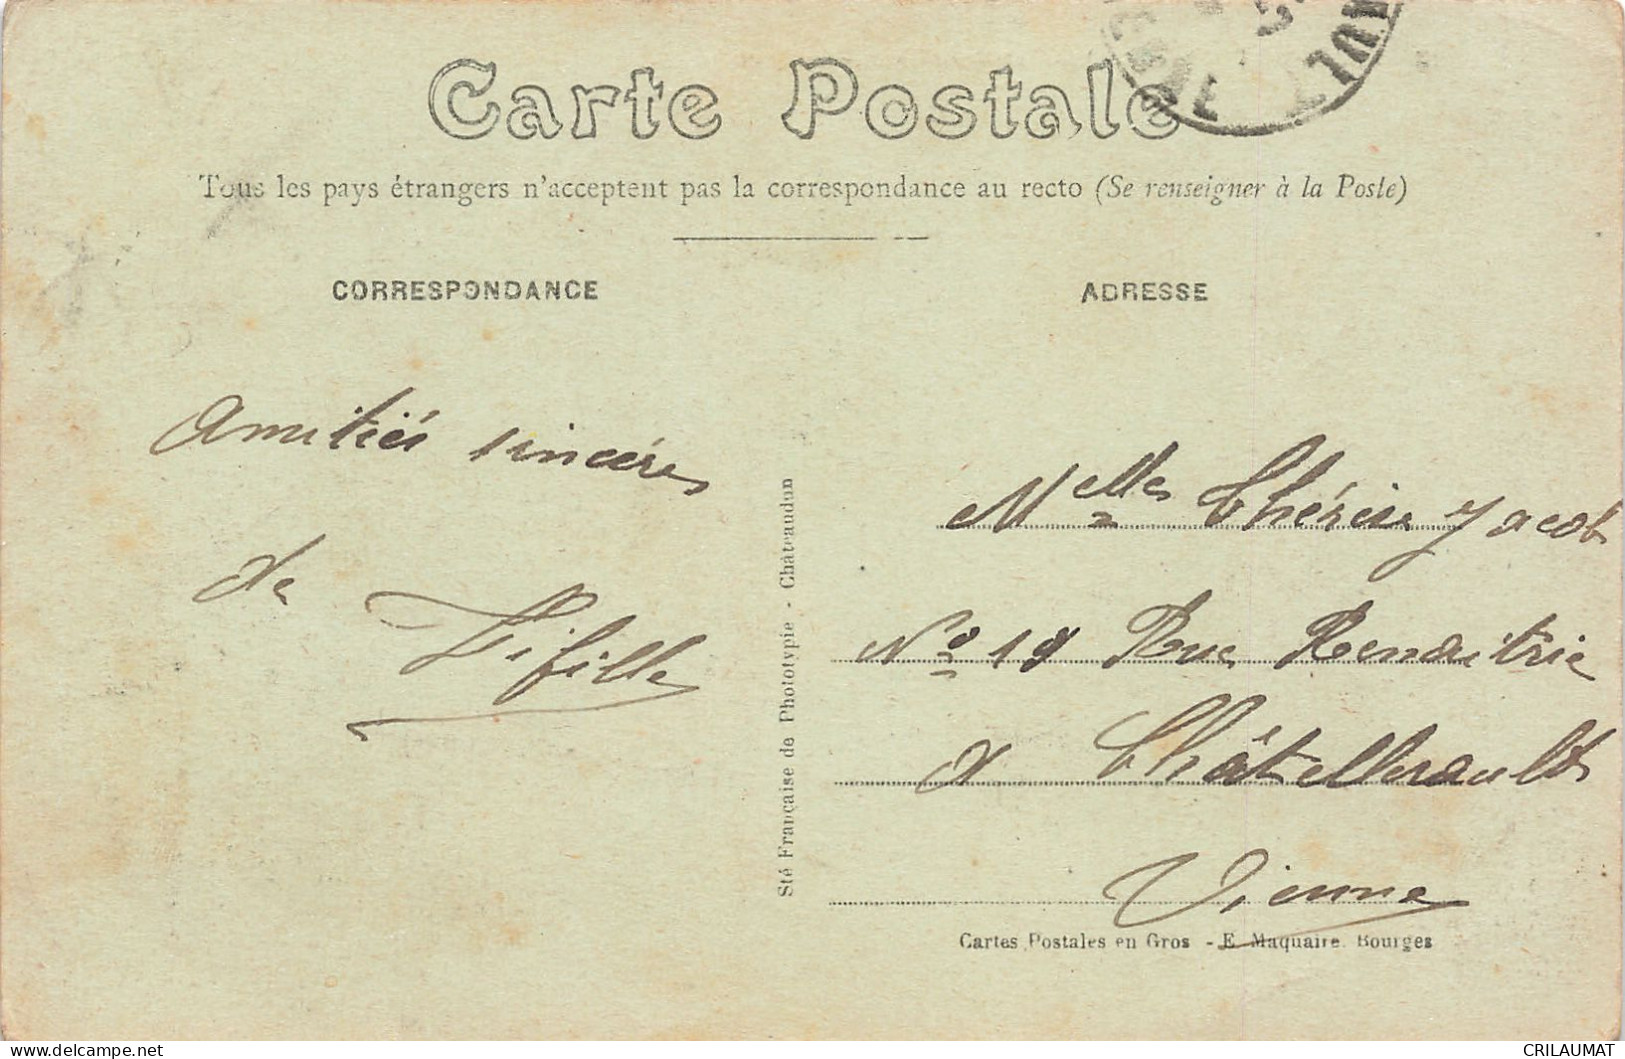 Carte Postale
Tous les pays étrangers n'acceptent pas la correspondance au recto (Se renseigner à la Poste)
CORRESPONDANCE
ADRESSE
Amitiés sincères
de
Fifille
Melle Thérèse Jacob
No 19 Rue Renaitrie
à Châtellerault
Vienne
Sté Française de Phototypie - Châteaudun
Cartes Postales en Gros - E. Maquaire. Bourges
CRILAUMAT